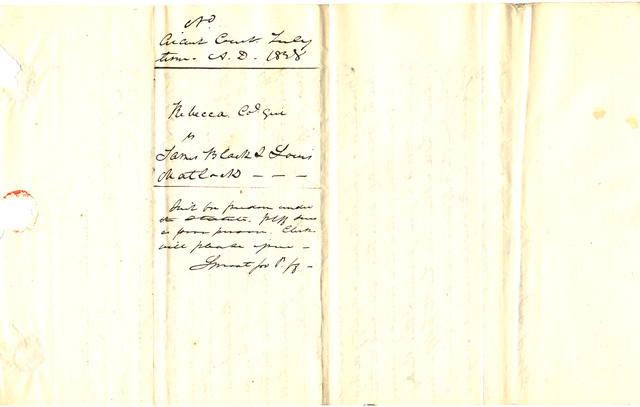 No
Circuit Court July
term A. D. 1838
Rebecca Cold Girl
vs
James Black & Louis
Matlock
Suit for freedom under
the Statute. Plff sues
as poor person. Clerk
will please issue
for Plff